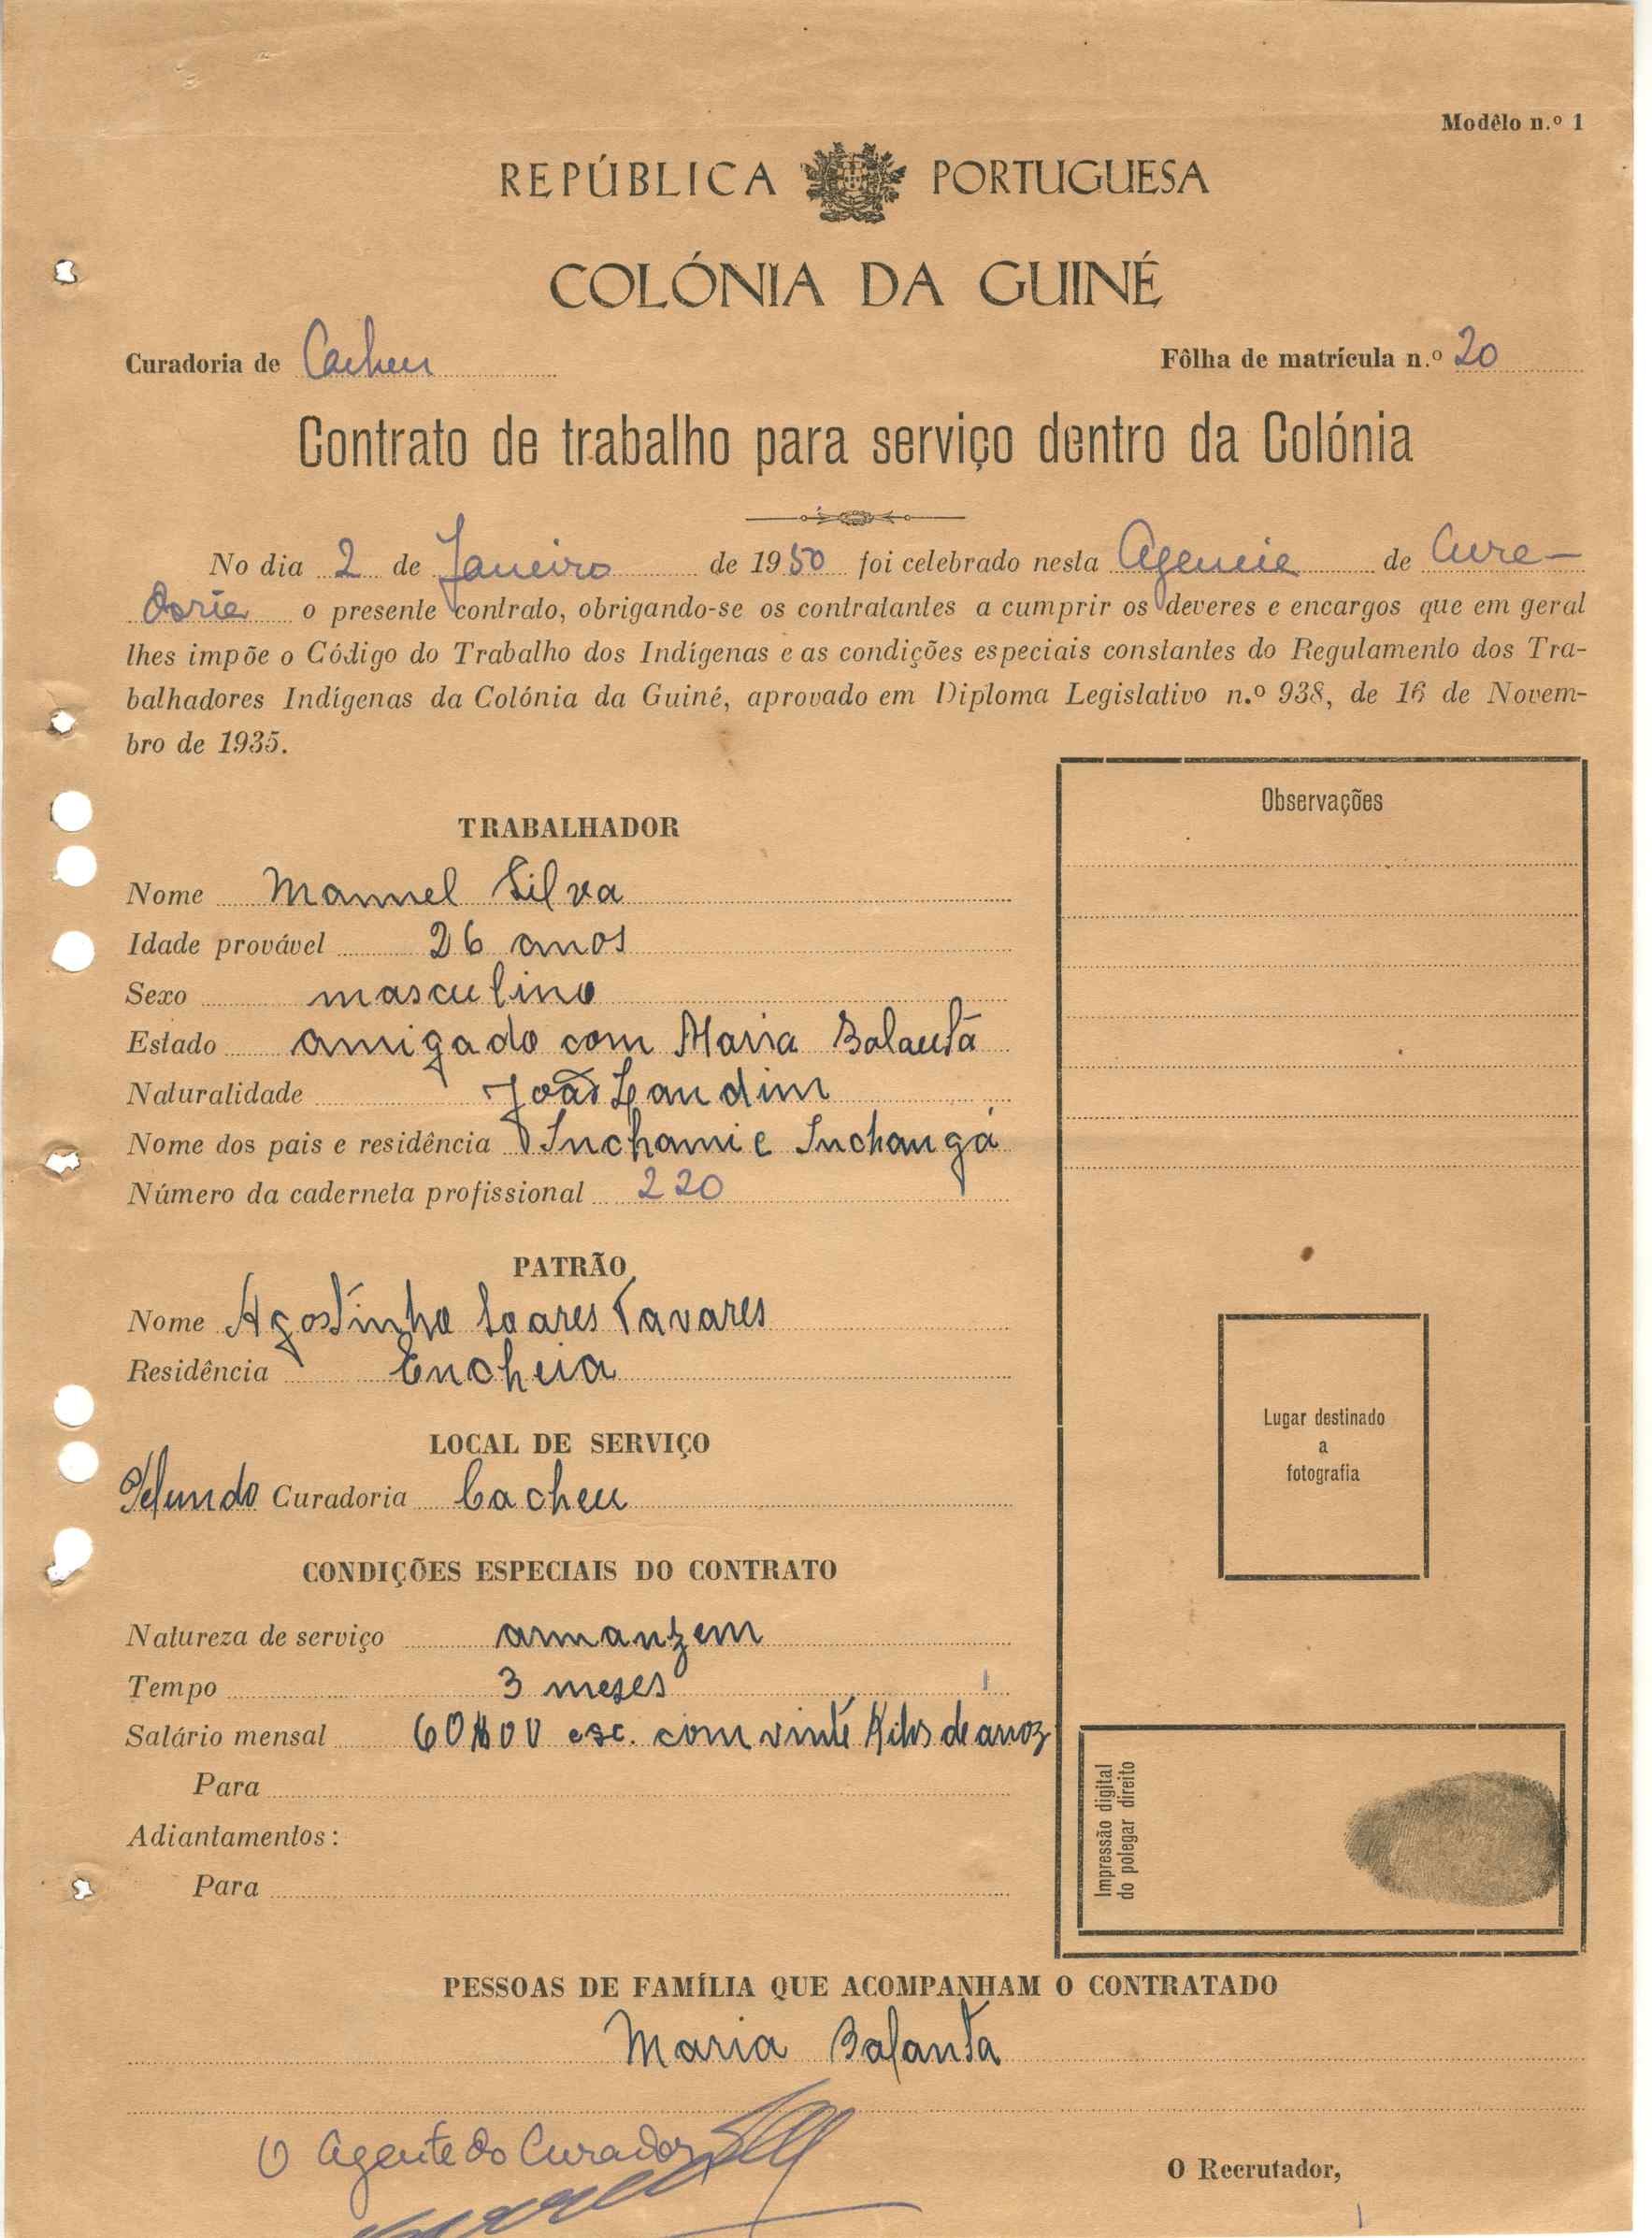 Modêlo n.º 1
REPÚBLICA PORTUGUESA
COLÓNIA DA GUINÉ
Curadoria de Cacheu Fôlha de matrícula n.º 20
Contrato de trabalho para serviço dentro da Colónia
No dia 2 de Janeiro de 1950 foi celebrado nesta Agencia de Cura-
doria o presente contrato, obrigando-se os contratantes a cumprir os deveres e encargos que em geral
lhes impõe o Código do Trabalho dos Indígenas e as condições especiais constantes do Regulamento dos Tra-
balhadores Indígenas da Colónia da Guiné, aprovado em Diploma Legislativo n.º 938, de 16 de Novem-
bro de 1935.
Observações
TRABALHADOR
Nome Manuel Silva
Idade provável 26 anos
Sexo masculino
Estado amigado com Maria Balanta
Naturalidade João Landim
Nome dos pais e residência Inchami e Inchanga
Número da caderneta profissional 220
PATRÃO
Nome Agostinho Soares Tavares
Residência Encheia
Lugar destinado
a
fotografia
LOCAL DE SERVIÇO
Curadoria Cacheu
CONDIÇÕES ESPECIAIS DO CONTRATO
Natureza de serviço armanzem
Tempo 3 meses
Salário mensal 60$00 esc. com vinte Kilos de arroz
Para
Adiantamentos:
Para
Impressão digital
do polegar direito
PESSOAS DE FAMÍLIA QUE ACOMPANHAM O CONTRATADO
Maria Balanta
O Agente do Curador
O Recrutador,